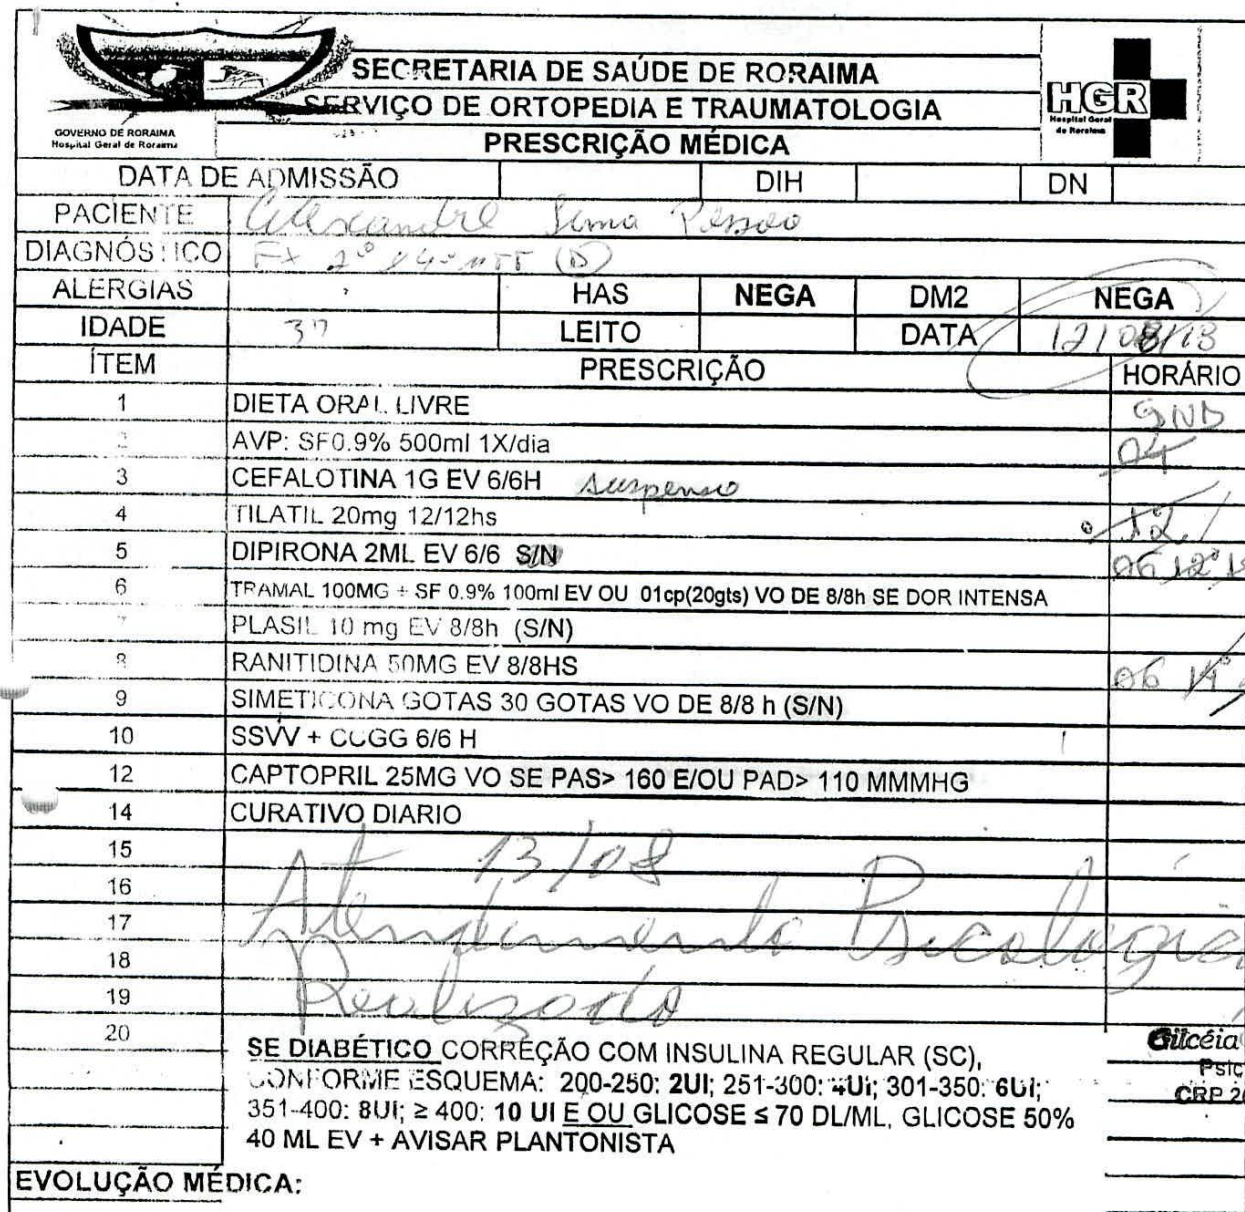 GOVERNO DE RORAIMA
Hospital Geral de Roraima
SECRETARIA DE SAÚDE DE RORAIMA
SERVIÇO DE ORTOPEDIA E TRAUMATOLOGIA
PRESCRIÇÃO MÉDICA
HGR
Hospital Geral
de Roraima
DATA DE ADMISSÃO DIH DN
PACIENTE Alexandre Lima Pessoa
DIAGNÓSTICO FX 2º 4º MTT (D)
ALERGIAS HAS NEGA DM2 NEGA
IDADE 37 LEITO DATA 12/08/18
ÍTEM PRESCRIÇÃO HORÁRIO
1 DIETA ORAL LIVRE SND
2 AVP: SF0.9% 500ml 1X/dia 04
3 CEFALOTINA 1G EV 6/6H suspenso
4 TILATIL 20mg 12/12hs 12
5 DIPIRONA 2ML EV 6/6 S/N 06 12
6 TRAMAL 100MG + SF 0.9% 100ml EV OU 01cp(20gts) VO DE 8/8h SE DOR INTENSA
7 PLASIL 10 mg EV 8/8h (S/N)
8 RANITIDINA 50MG EV 8/8HS 06 14
9 SIMETICONA GOTAS 30 GOTAS VO DE 8/8 h (S/N)
10 SSVV + CCGG 6/6 H
12 CAPTOPRIL 25MG VO SE PAS> 160 E/OU PAD> 110 MMMHG
14 CURATIVO DIARIO
15 13/08
16
17 Atendimento Psicológico
18
19 Realizado
20
SE DIABÉTICO CORREÇÃO COM INSULINA REGULAR (SC),
CONFORME ESQUEMA: 200-250: 2UI; 251-300: 4UI; 301-350: 6UI;
351-400: 8UI; ≥ 400: 10 UI E OU GLICOSE ≤ 70 DL/ML, GLICOSE 50%
40 ML EV + AVISAR PLANTONISTA
Gilcéia
Psic
CRP 20
EVOLUÇÃO MÉDICA: